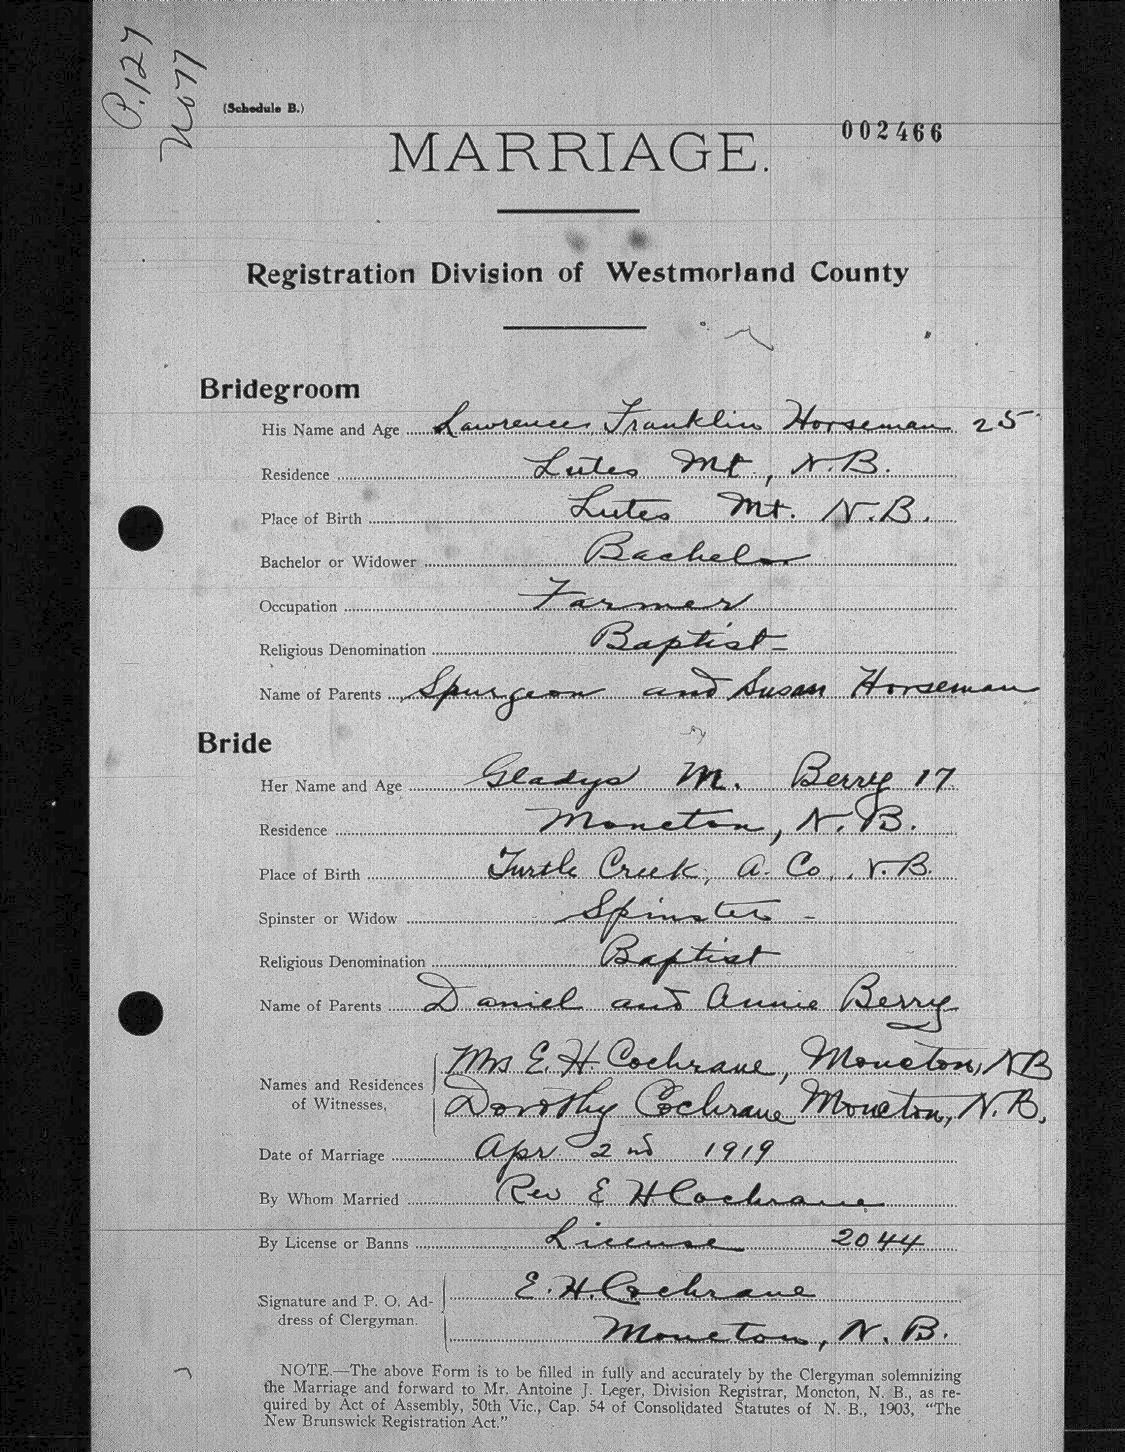 P. 127
No 77
(Schedule B.)
002466
MARRIAGE.
Registration Division of Westmorland County
Bridegroom
His Name and Age Lawrence Franklin Horseman 25
Residence Lutes Mt, N.B.
Place of Birth Lutes Mt. N.B.
Bachelor or Widower Bachelor
Occupation Farmer
Religious Denomination Baptist
Name of Parents Spurgeon and Susan Horseman
Bride
Her Name and Age Gladys M. Berry 17
Residence Moncton, N.B.
Place of Birth Turtle Creek, A. Co. N.B.
Spinster or Widow Spinster -
Religious Denomination Baptist
Name of Parents Daniel and Annie Berry
Names and Residences of Witnesses, Mrs E. H. Cochrane, Moncton, NB
Dorothy Cochrane Moncton, N.B.
Date of Marriage Apr 2nd 1919
By Whom Married Rev E H Cochrane
By License or Banns License 2044
Signature and P. O. Ad-
dress of Clergyman. E. H. Cochrane
Moncton, N. B.
NOTE.—The above Form is to be filled in fully and accurately by the Clergyman solemnizing
the Marriage and forward to Mr. Antoine J. Leger, Division Registrar, Moncton, N. B., as re-
quired by Act of Assembly, 50th Vic., Cap. 54 of Consolidated Statutes of N. B., 1903, “The
New Brunswick Registration Act.”